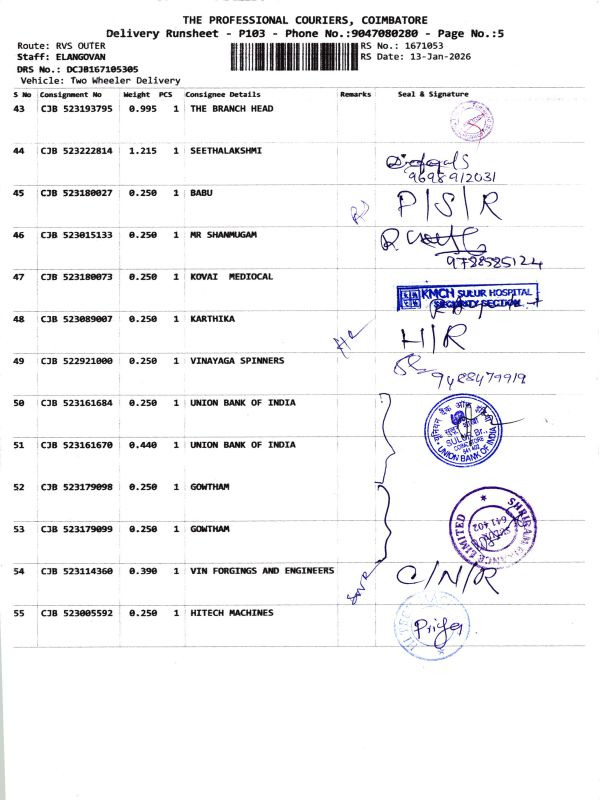 THE PROFESSIONAL COURIERS, COIMBATORE
Delivery Runsheet - P103 - Phone No.:9047080280 - Page No.:5
Route: RVS OUTER
RS No.: 1671053
Staff: ELANGOVAN
RS Date: 13-Jan-2026
DRS No.: DCJB167105305
Vehicle: Two Wheeler Delivery
S No Consignment No Weight PCS Consignee Details Remarks Seal & Signature
43 CJB 523193795 0.995 1 THE BRANCH HEAD
44 CJB 523222814 1.215 1 SEETHALAKSHMI
9698912031
45 CJB 523180027 0.250 1 BABU
P/S/R
46 CJB 523015133 0.250 1 MR SHANMUGAM
9788585124
47 CJB 523180073 0.250 1 KOVAI MEDIOCAL
KMCH SULUR HOSPITAL
SECURITY SECTION
48 CJB 523089007 0.250 1 KARTHIKA
H/R
49 CJB 522921000 0.250 1 VINAYAGA SPINNERS
9488479919
50 CJB 523161684 0.250 1 UNION BANK OF INDIA
यूनियन बैंक ऑफ इंडिया
SULUR Br.,
COIMBATORE
641 402
UNION BANK OF INDIA
51 CJB 523161670 0.440 1 UNION BANK OF INDIA
52 CJB 523179098 0.250 1 GOWTHAM
SHRIRAM FINANCE LIMITED
SULUR
641 402
53 CJB 523179099 0.250 1 GOWTHAM
54 CJB 523114360 0.390 1 VIN FORGINGS AND ENGINEERS
C/N/R
55 CJB 523005592 0.250 1 HITECH MACHINES
Priya